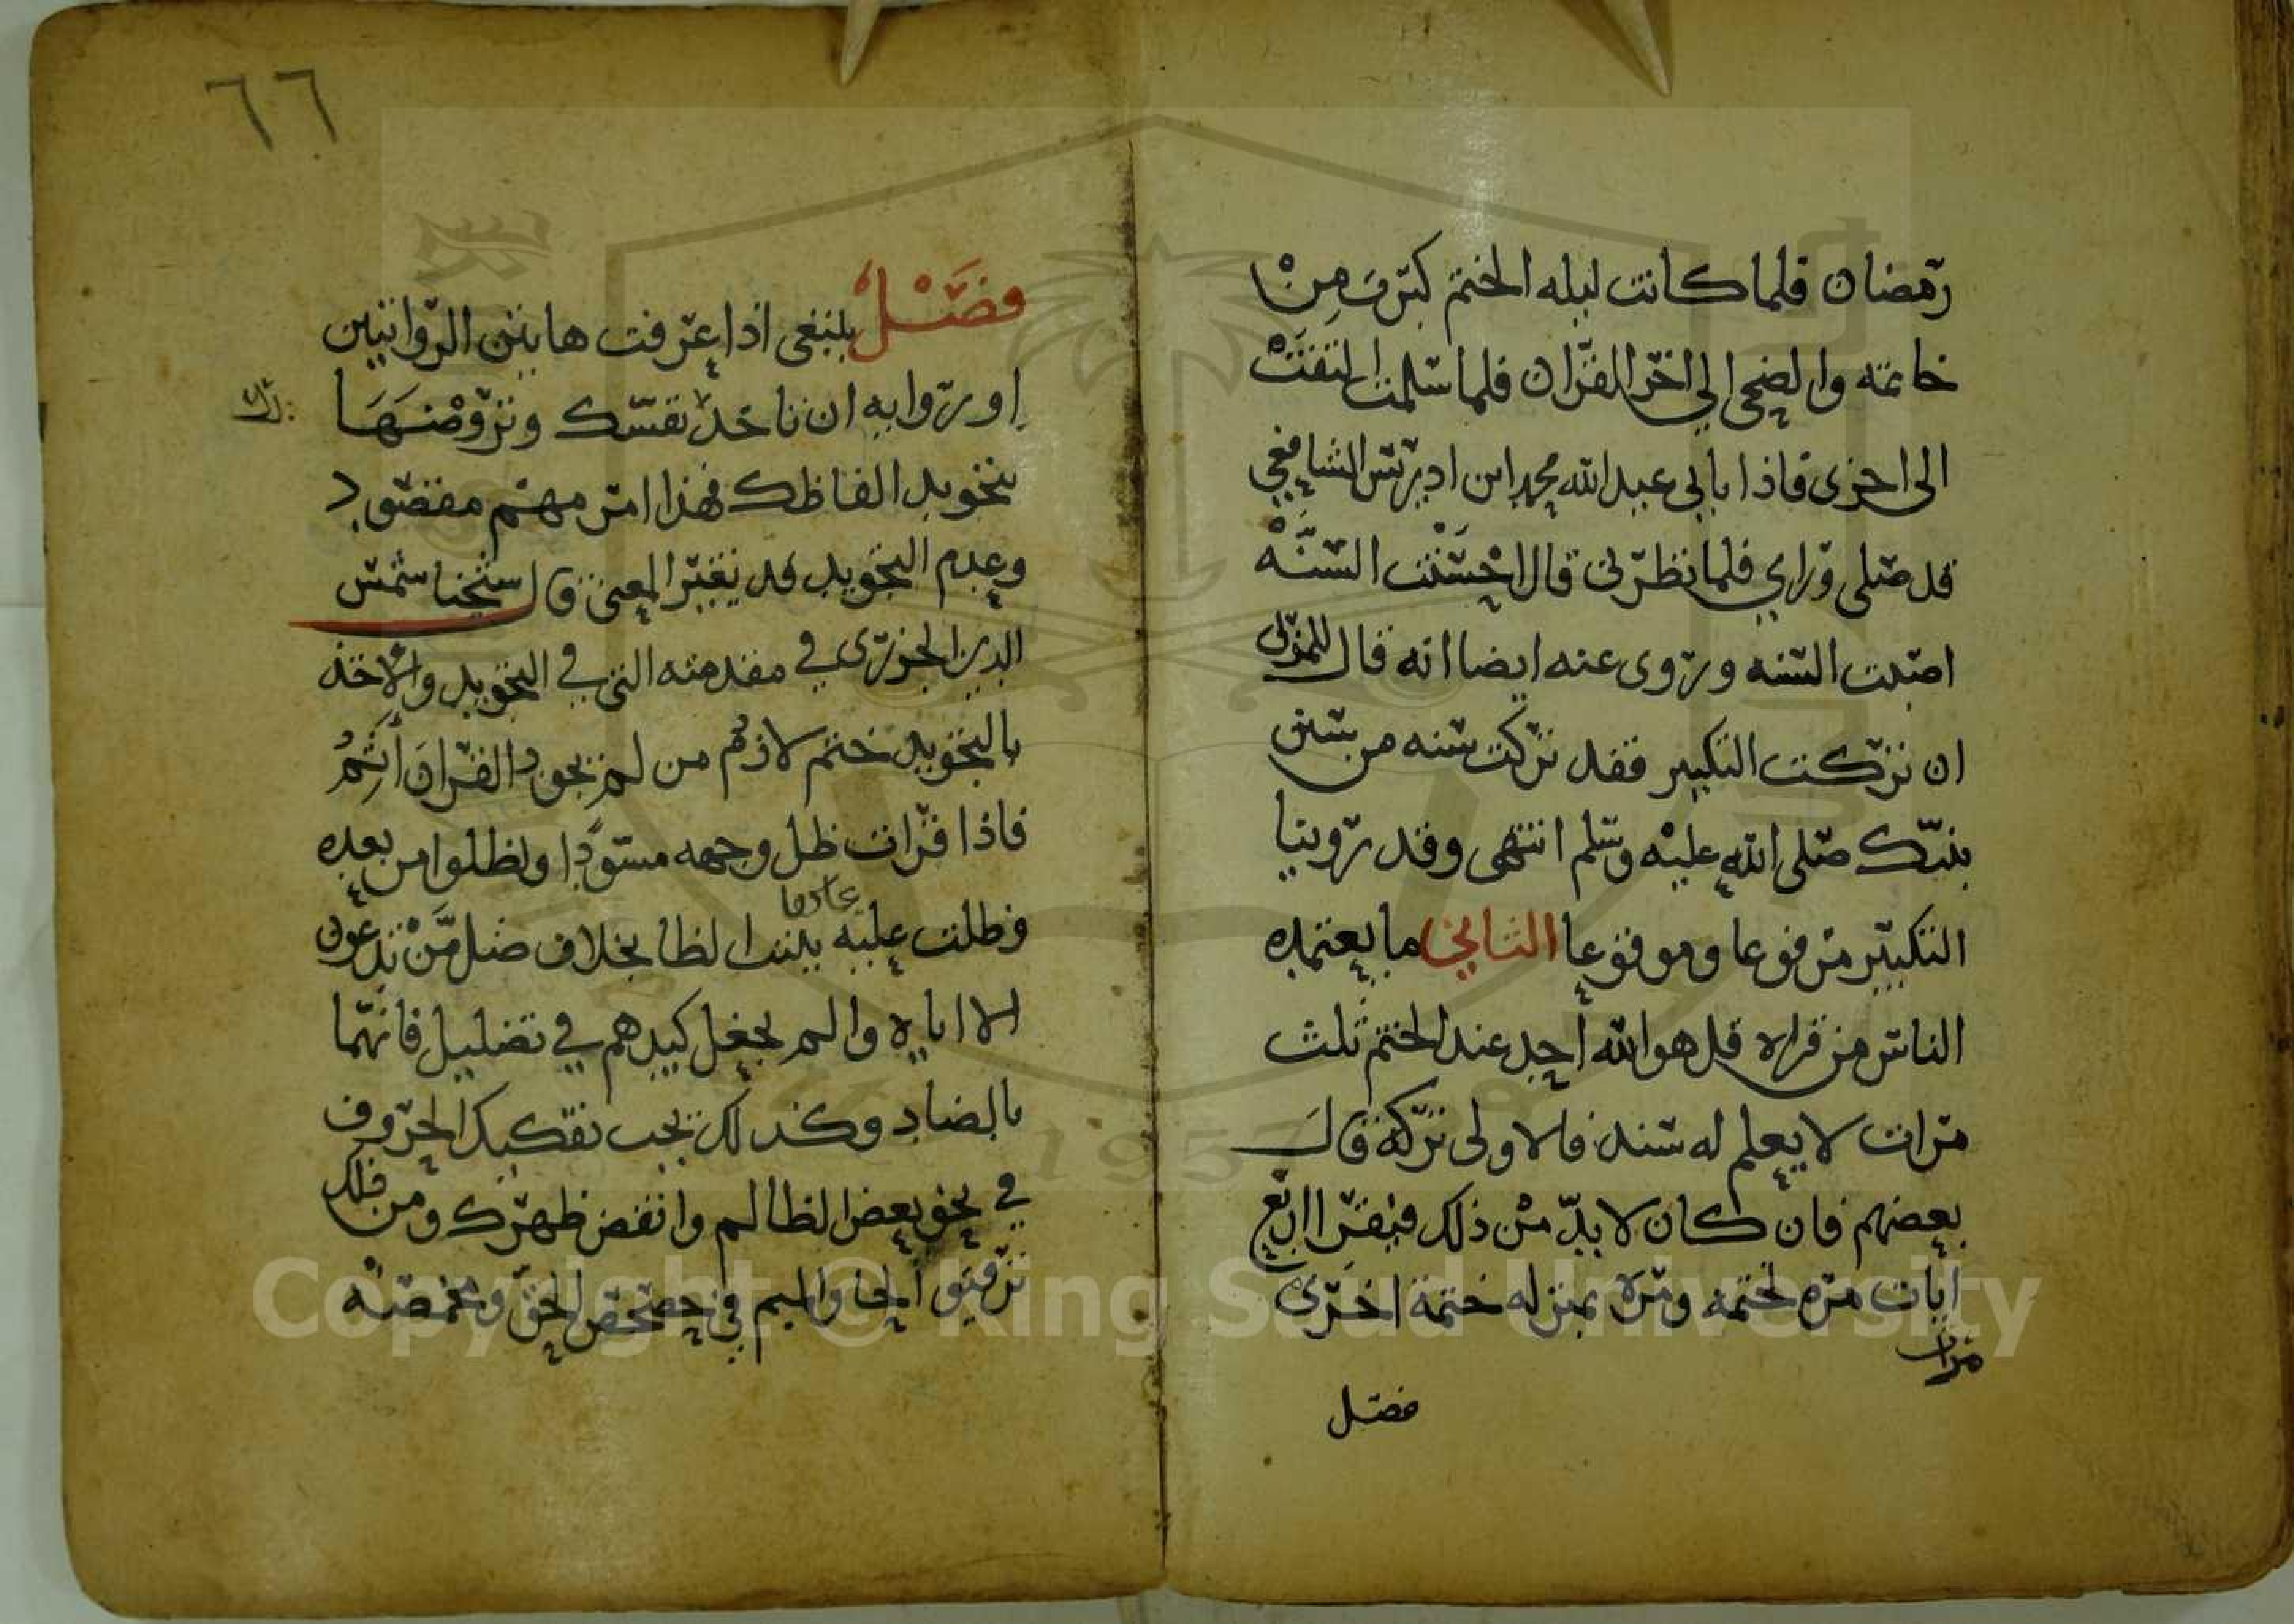 رمضان فلما كانت ليله الختم كبرت من
خاتمه والضحى الى اخر القران فلما سلمت التفتت
الى احزى فاذا بابى عبد الله محمد ابن ادريس الشافعى
قد صلى وراى فلما نظرنى قال احسنت السنه
اصبت السنه وروى عنه ايضا انه قال للبزى
ان تركت التكبير فقد تركت سنه من سنن
نبيك صلى الله عليه وسلم انتهى وقد روينا
التكبير مرفوعا وموقوعا الثانى ما يعتمده
الناس من قراه قل هو الله أحد عند الختم ثلث
مرات لا يعلم له سند فالاولى تركه قال
بعضهم فان كان لا بد من ذلك فيقرا اربع
مرات
ايات مره لختمه ومره بمنزله ختمة اخرى
فصل
٦٦
فصل ينبغى اذا عرفت هاتين الروايتين
او روايه ان تاخذ نفسك وتروضها
بتجويد الفاظك فهذا امر مهم مقصود
وعدم التجويد قد يغير المعنى قال شيخنا شمس
الدين الجزرى في مقدمته التى في التجويد والاخذ
بالتجويد حتم لازم من لم يجود القران أثم
فاذا قرات ظل وجهه مسودا ولظلوا من بعده
فظلت عليه بينت الظا بخلاف ضل من تدعون
الا اياه والم يجعل كيدهم في تضليل فانهما
بالضاد وكذلك يجب تفكيك الحروف
في نحو يعض الظالم وانقض ظهرك ومن ذلك
ترقيق الحا والميم في حصحص الحق ومخمصه
Copyright © King Saud University
1957